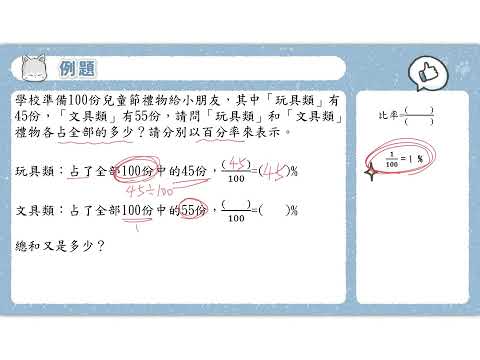 例題
學校準備100份兒童節禮物給小朋友，其中「玩具類」有
45份，「文具類」有55份，請問「玩具類」和「文具類」
禮物各占全部的多少？請分別以百分率來表示。
玩具類：占了全部100份中的45份，(45)/100=(45)%
45÷100
文具類：占了全部100份中的55份，(　)/100=(　)%
1
總和又是多少？
比率=(　)/(　)
1/100=1 %